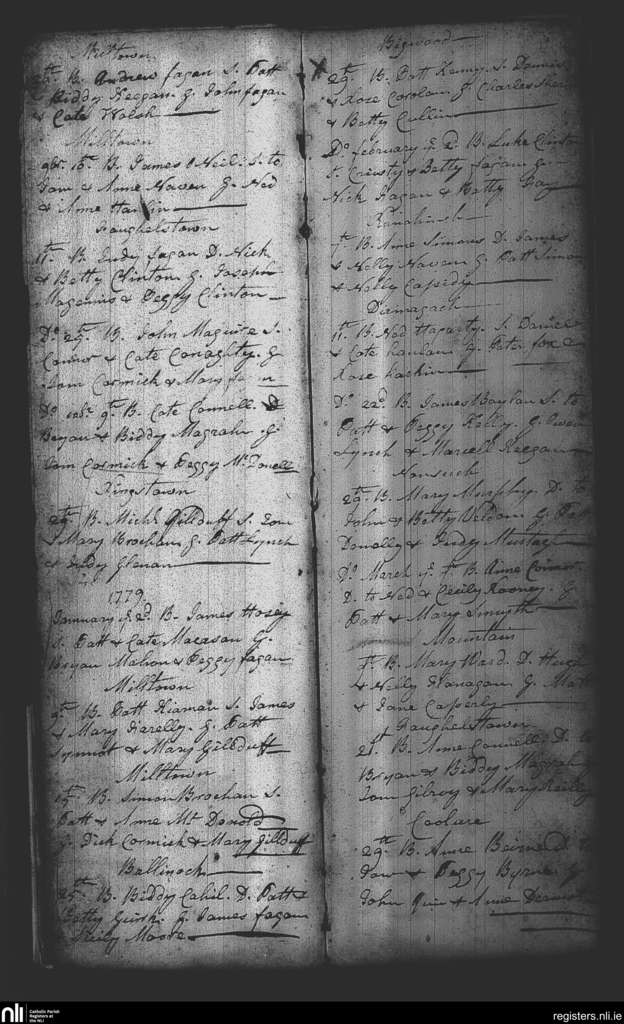 Milltown
B. Andrew fagan S. Patt
& Biddy Keegan G. John fagan
& Cate Walsh
Milltown
9br. 16th. B. James O Neil S. to
Tom & Anne Naven G. Ned
& Anne
Faughelstown
11th. B. Judy fagan D. Nick
& Betty Clinton G. Joseph
Magennis & Peggy Clinton
Do. 29th. B. John Maguire S.
Connor & Cate Conaghty. G
Tom Cormick & Mary
Do. 9th. B. Cate Connell D
Bryan & Biddy Magrah G.
Tom Cormick & Peggy Mc.Donell
Ringstown
29th. B. Michl. Gillduff S. Tom
& Mary Brochan G. Patt Lynch
& Judy Glenan
1779
January ye. 2d. B. James Hosey
S. Patt & Cate Macason G.
Bryan Mahon & Peggy fagan
Milltown
9th. B. Patt Kiarnan S. James
& Mary Farelly. G. Patt
Synnot & Mary Gillduff
Milltown
15th. B. Simon Brochan S.
Patt & Anne Mc. Donold
G. Dick Cormick & Mary Gillduff
Ballinoch
25th. B. Biddy Cahil. D. Patt &
Betty G. James fagan
& Moore
Bigwood
29th. B. Patt Kenny. S. Daniel
& Rose Carolan G. Charles
& Betty Cullin
Do. february ye. 2d. B. Luke Clinton
S. Cristy & Betty fagan G.
Nick Fagan & Betty
7th. B. Anne Simons D. James
& Nelly Naven G. Patt Simon
& Nelly Cassidy
Damagach
11th. B. Ned Hagarty. S. Daniel
& Cate hanlon G. Peter fox &
Rose
Do. 22d. B. James Boylan S. to
Patt & Peggy Kelly. G. Owen
Lynch & Marcell Keegan
29th. B. Mary Murphy D. to
John & Betty Veldom G. Patt
Donolly & Judy
Do. March ye. 7th. B. Anne
D. to Ned & Cecily Rooney. G.
Patt & Mary Smyth
Mountain
7th. B. Mary Ward. D. Hugh
& Nelly Flanagan G.
& Jane Casserly
Faughelstown
21st. B. Anne Connell D. to
Bryan & Biddy Magrah G.
Tom Gilroy & Mary Reilly
Coolure
29th. B. Anne D. to
Tom & Peggy Byrne G.
John Quin & Anne
nli
Catholic Parish
Registers at
the NLI
registers.nli.ie